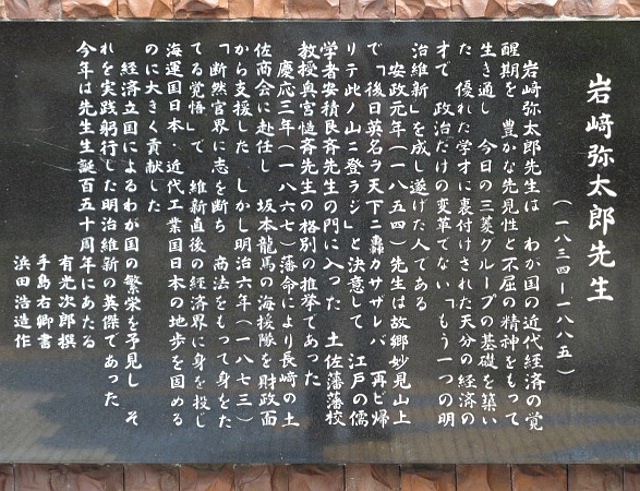 岩﨑弥太郎先生
(一八三四ー一八八五)
岩﨑弥太郎先生は わが国の近代経済の覚
醒期を 豊かな先見性と不屈の精神をもって
生き通し 今日の三菱グループの基礎を築い
た 優れた学才に裏付けされた天分の経済の
才で 政治だけの変革でない「もう一つの明
治維新」を成し遂げた人である
安政元年(一八五四)先生は故郷妙見山上
で「後日英名ヲ天下ニ轟カサザレバ 再ビ帰
リテ此ノ山ニ登ラジ」と決意して 江戸の儒
学者安積艮斉先生の門に入った 土佐藩藩校
教授奥宮慥斉先生の格別の推挙であった
慶応三年(一八六七)藩命により長崎の土
佐商会に赴任し 坂本龍馬の海援隊を財政面
から支援した しかし明治六年(一八七三)
「断然官界に志を断ち 商法をもって身をた
てる覚悟」で 維新直後の経済界に身を投じ
海運国日本・近代工業国日本の地歩を固める
のに大きく貢献した
経済立国によるわが国の繁栄を予見し そ
れを実践躬行した明治維新の英傑であった
今年は先生生誕百五十周年にあたる
有光次郎撰
手島右卿書
浜田浩造作